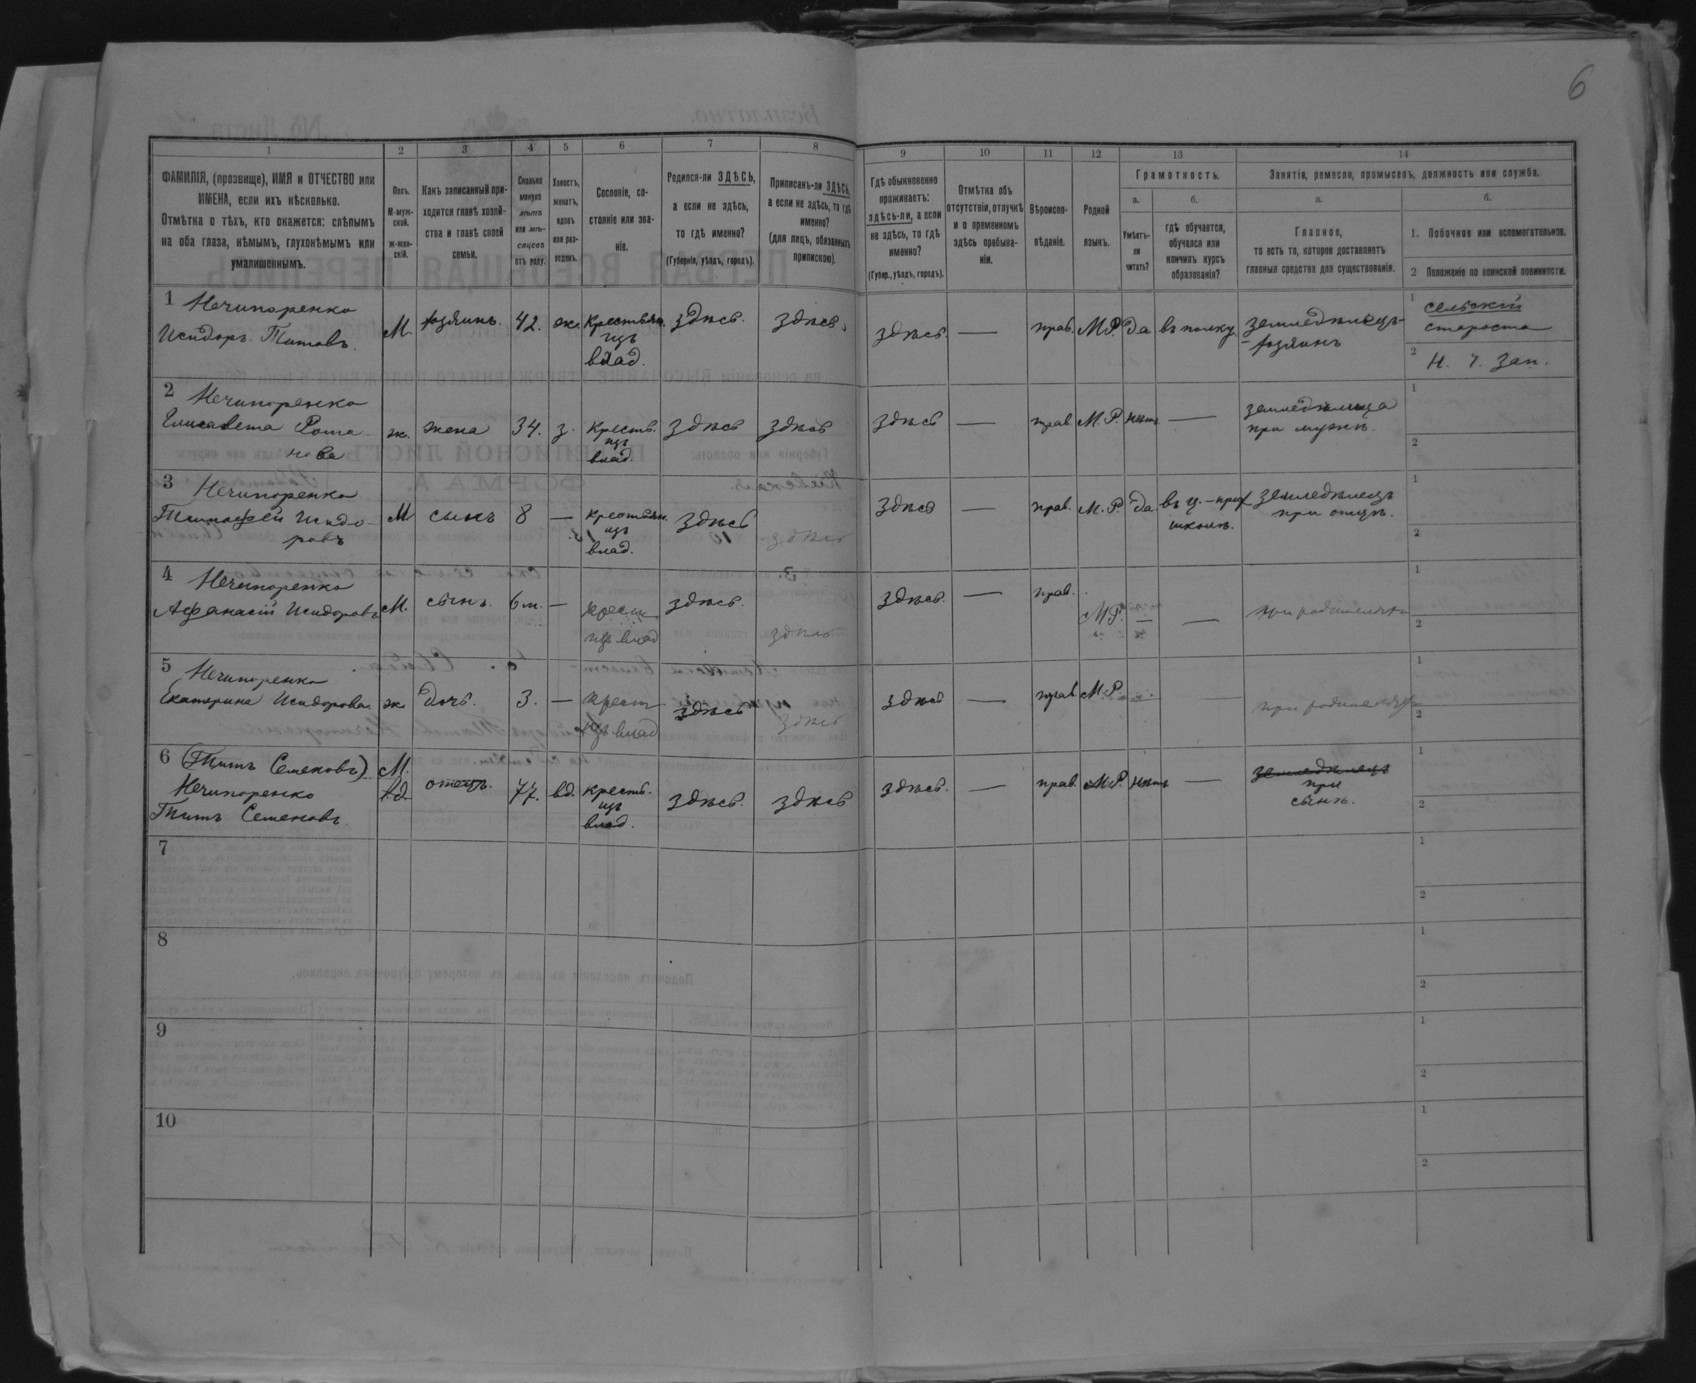 6
1 2 3 4 5 6 7 8 9 10 11 12 13 14
ФАМИЛІЯ, (прозвище), ИМЯ и ОТЧЕСТВО или
ИМЕНА, если ихъ нѣсколько.
Отмѣтка о тѣхъ, кто окажется: слѣпымъ
на оба глаза, нѣмымъ, глухонѣмымъ или
умалишеннымъ.
Полъ.
М-муж-
ской.
Ж-жен-
скій.
Какъ записанный при-
ходится главѣ хозяй-
ства и главѣ своей
семьи.
Сколько
минуло
лѣтъ
или мѣ-
сяцевъ
отъ роду.
Холостъ,
женатъ,
вдовъ
или раз-
веденъ.
Сословіе, со-
стояніе или зва-
ніе.
Родился-ли ЗДѢСЬ,
а если не здѣсь,
то гдѣ именно?
(Губернія, уѣздъ, городъ).
Приписанъ-ли ЗДѢСЬ,
а если не здѣсь, то гдѣ
именно?
(для лицъ, обязанныхъ
припискою).
Гдѣ обыкновенно
проживаетъ:
здѣсь-ли, а если
не здѣсь, то гдѣ
именно?
(Губер., уѣздъ, городъ).
Отмѣтка объ
отсутствіи, отлучкѣ
и о временномъ
здѣсь пребыва-
ніи.
Вѣроиспо-
вѣданіе.
Родной
языкъ.
Грамотность.
а.
Умѣетъ-
ли
читать?
б.
гдѣ обучается,
обучался или
кончилъ курсъ
образованія?
Занятіе, ремесло, промыселъ, должность или служба.
а.
Главное,
то есть то, которое доставляетъ
главныя средства для существованія.
б.
1. Побочное или вспомогательное.
2 Положеніе по воинской повинности.
1 Нечипоренко
Исидоръ Титовъ.
М.
хозяинъ.
42.
ж.
Крестьян.
изъ
влад.
здѣсь.
здѣсь
здѣсь.
—
прав.
М.Р.
да
въ полку
земледѣлецъ-
хозяинъ
1 сельскій
староста
2 Н. 1. Зап.
2 Нечипоренко
Елисавета Рома-
нова
ж.
жена
34.
з.
Крестьь.
изъ
влад.
здѣсь
здѣсь
здѣсь
—
прав
М.Р.
нѣтъ
—
земледѣлица
при мужѣ.
1
2
3 Нечипоренко
Тимофей Исидо-
ровъ
М
сынъ
8
—
крестьян.
изъ
влад.
здѣсь
здѣсь
здѣсь
—
прав.
М.Р.
да
въ ц.-прих
школѣ.
земледѣлецъ
при отцѣ.
1
2
4 Нечипоренко
Афанасій Исидоровъ
М.
сынъ.
6 м.
—
крестьян
изъ влад
здѣсь.
здѣсь
здѣсь.
—
прав.
М.Р.
—
—
при родителяхъ
1
2
5 Нечипоренко
Екатерина Исидорова.
ж.
дочь.
3.
—
крест
изъ влад
здѣсь
здѣсь
здѣсь
—
прав
М.Р.
—
—
при родителяхъ
1
2
6 (Титъ Семеновъ)
Нечипоренко
Титъ Семеновъ.
М.
вд.
отецъ.
77.
вд.
крестьь.
изъ
влад.
здѣсь.
здѣсь
здѣсь.
—
прав
М.Р.
нѣтъ
—
земледѣлецъ
при
сынѣ.
1
2
7
1
2
8
1
2
9
1
2
10
1
2